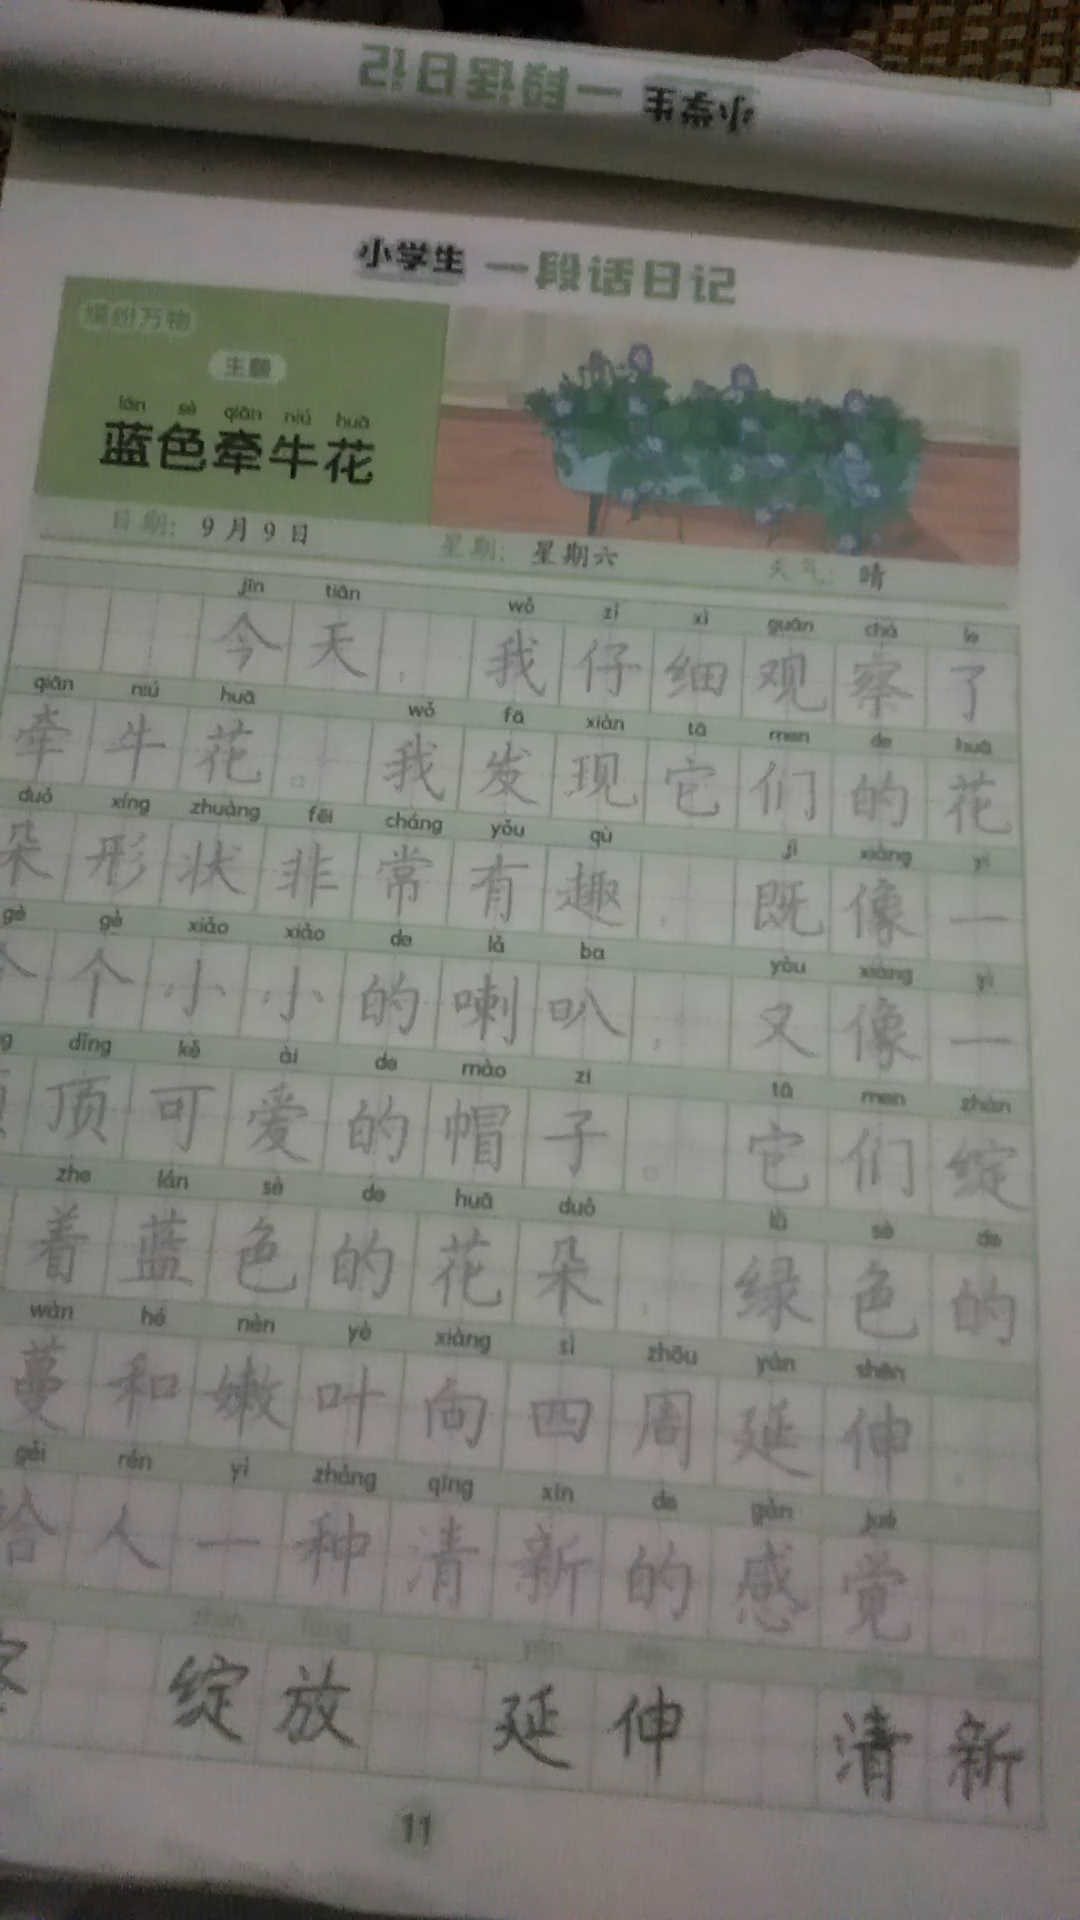 小学生 一段话日记
小学生 一段话日记
缤纷万物
主题
lán sè qiān niú huā
蓝色牵牛花
日期： 9月9日 星期： 星期六 天气： 晴
jīn tiān wǒ zǐ xì guān chá le
今天，我仔细观察了
qiān niú huā wǒ fā xiàn tā men de huā
牵牛花。我发现它们的花
duǒ xíng zhuàng fēi cháng yǒu qù jì xiàng yí
朵形状非常有趣，既像一
gè gè xiǎo xiǎo de lǎ ba yòu xiàng yì
个个小小的喇叭，又像一
dǐng kě ài de mào zi tā men zhàn
顶可爱的帽子。它们绽
zhe lán sè de huā duǒ lǜ sè de
着蓝色的花朵，绿色的
wàn hé nèn yè xiàng sì zhōu yán shēn
蔓和嫩叶向四周延伸。
gěi rén yì zhǒng qīng xīn de gǎn jué
给人一种清新的感觉
绽放 延伸 清新
11